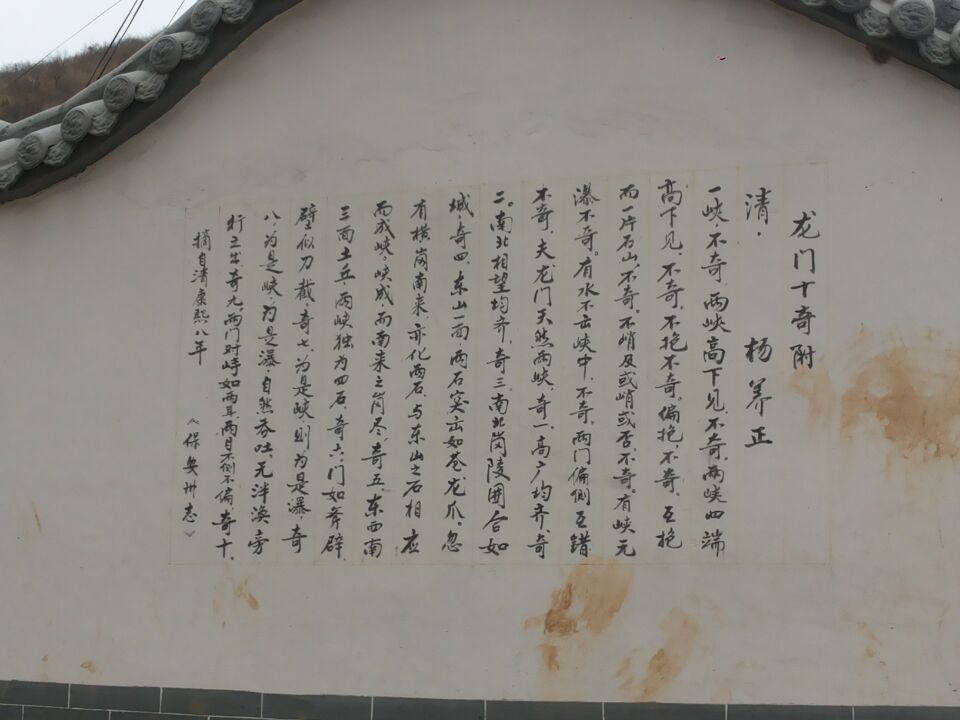 龙门十奇附
清·杨养正
一峡，不奇，两峡高下见，不奇，两峡四端
高下见，不奇，不抱不奇。偏抱不奇。互抱
而一片石山，不奇。不峭及或峭或否不奇。有峡无
瀑不奇。有水不出峡中，不奇，两门偏侧互错
不奇，夫龙门天然两峡，奇一，高广均齐，奇
二。南北相望均齐，奇三，南北岗陵围合如
城，奇四，东山一面，两石突出如苍龙爪。忽
有横岗南来，亦化两石，与东山之石相应
而成峡。峡成，而南来之岗尽，奇五，东西南
三面土丘，两峡独为四石，奇六，门如斧辟，
壁似刀截，奇七，为是峡，则为是瀑，奇
八，为是峡，为是瀑，自然吞吐，无泮涣旁
行之势奇九，两门对峙如两耳，两目不倒不偏奇十。
摘自清康熙八年《保安州志》